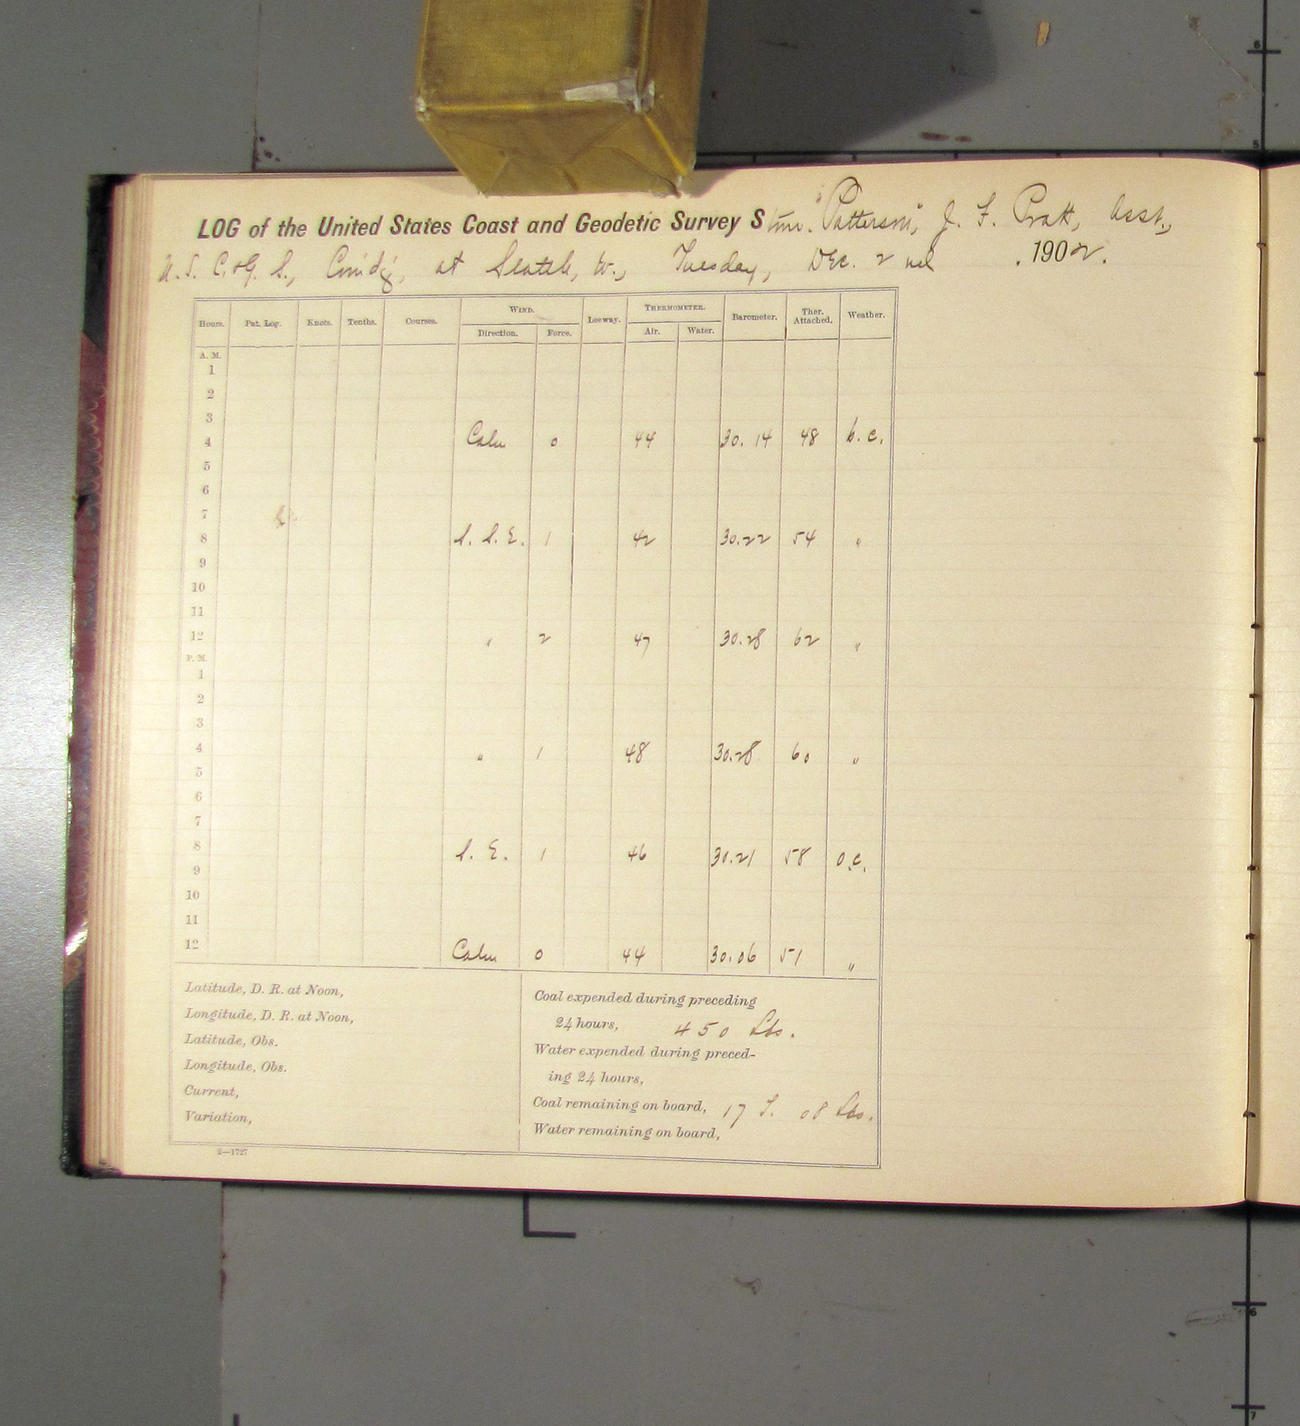 LOG of the United States Coast and Geodetic Survey Stmr. "Patterson", J. F. Pratt, Asst.,
U. S. C. & G. S., Comdg, at Seattle, W., Tuesday, Dec. 2nd, 1902.
Hours. Pat. Log. Knots. Tenths. Courses. WIND. Leeway. THERMOMETER. Barometer. Ther. Attached. Weather.
Direction. Force. Air. Water.
A. M.
1
2
3
4 Calm 0 44 30.14 48 b.c.
5
6
7
8 S. S. E. 1 42 30.22 54 "
9
10
11
12 " 2 47 30.28 62 "
P. M.
1
2
3
4 " 1 48 30.28 60 "
5
6
7
8 S. E. 1 46 30.21 58 o.c.
9
10
11
12 Calm 0 44 30.06 51 "
Latitude, D. R. at Noon,
Longitude, D. R. at Noon,
Latitude, Obs.
Longitude, Obs.
Current,
Variation,
Coal expended during preceding
24 hours, 450 Lbs.
Water expended during preced-
ing 24 hours,
Coal remaining on board, 17 T. 08 Lbs.
Water remaining on board,
2—1727
5
6
6
7